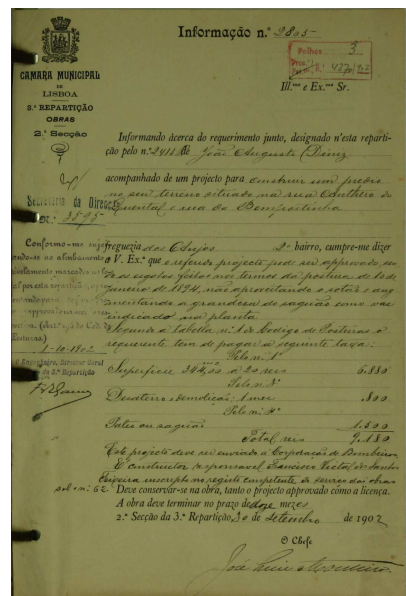 Informação n.º 2895
Folhas 3
Proc.
N.º 4220/902
CAMARA MUNICIPAL
DE
LISBOA
3.ª REPARTIÇÃO
OBRAS
2.ª Secção
Ill.mo e Ex.mo Sr.
Informando ácerca do requerimento junto, designado n'esta reparti-
ção pelo n.º 2911 de João Augusto Diniz
acompanhado de um projecto para construir um predio
no seu terreno situado na rua Anthero de
Quental e rua do Bemformosinho
Secretaria da Direcção
N.º 3595
freguezia dos Anjos 2.º bairro, cumpre-me dizer
a V. Ex.ª que o referido projecto pode ser approvado
os esgotos feitos nos termos da postura de 18 de
janeiro de 1894, não aproveitando o sotão e aug
mentando a grandeza do saguão como vae
indicado na planta
Segundo a tabella n.º 1 do Codigo de Posturas o
requerente tem de pagar a seguinte taxa:
Conformo-me
1-10-1902
O Engenheiro, Director Geral
da 3.ª Repartição
Pelo n.º 1
Superficie 344,00 a 20 reis 6.880
1 mez .800
Pelo n.º
Pateo ou saguão 1.500
Total, reis 9.180
Este projecto deve ser enviado á Corporação de Bombeiros
É constructor responsavel Francisco Victal dos Santos
Teixeira inscripto no registo competente do serviço das obras
sob o n.º 62. Deve conservar-se na obra, tanto o projecto approvado como a licença.
A obra deve terminar no prazo de doze mezes
2.ª Secção da 3.ª Repartição 30 de setembro de 1902
O Chefe
José Luiz Monteiro